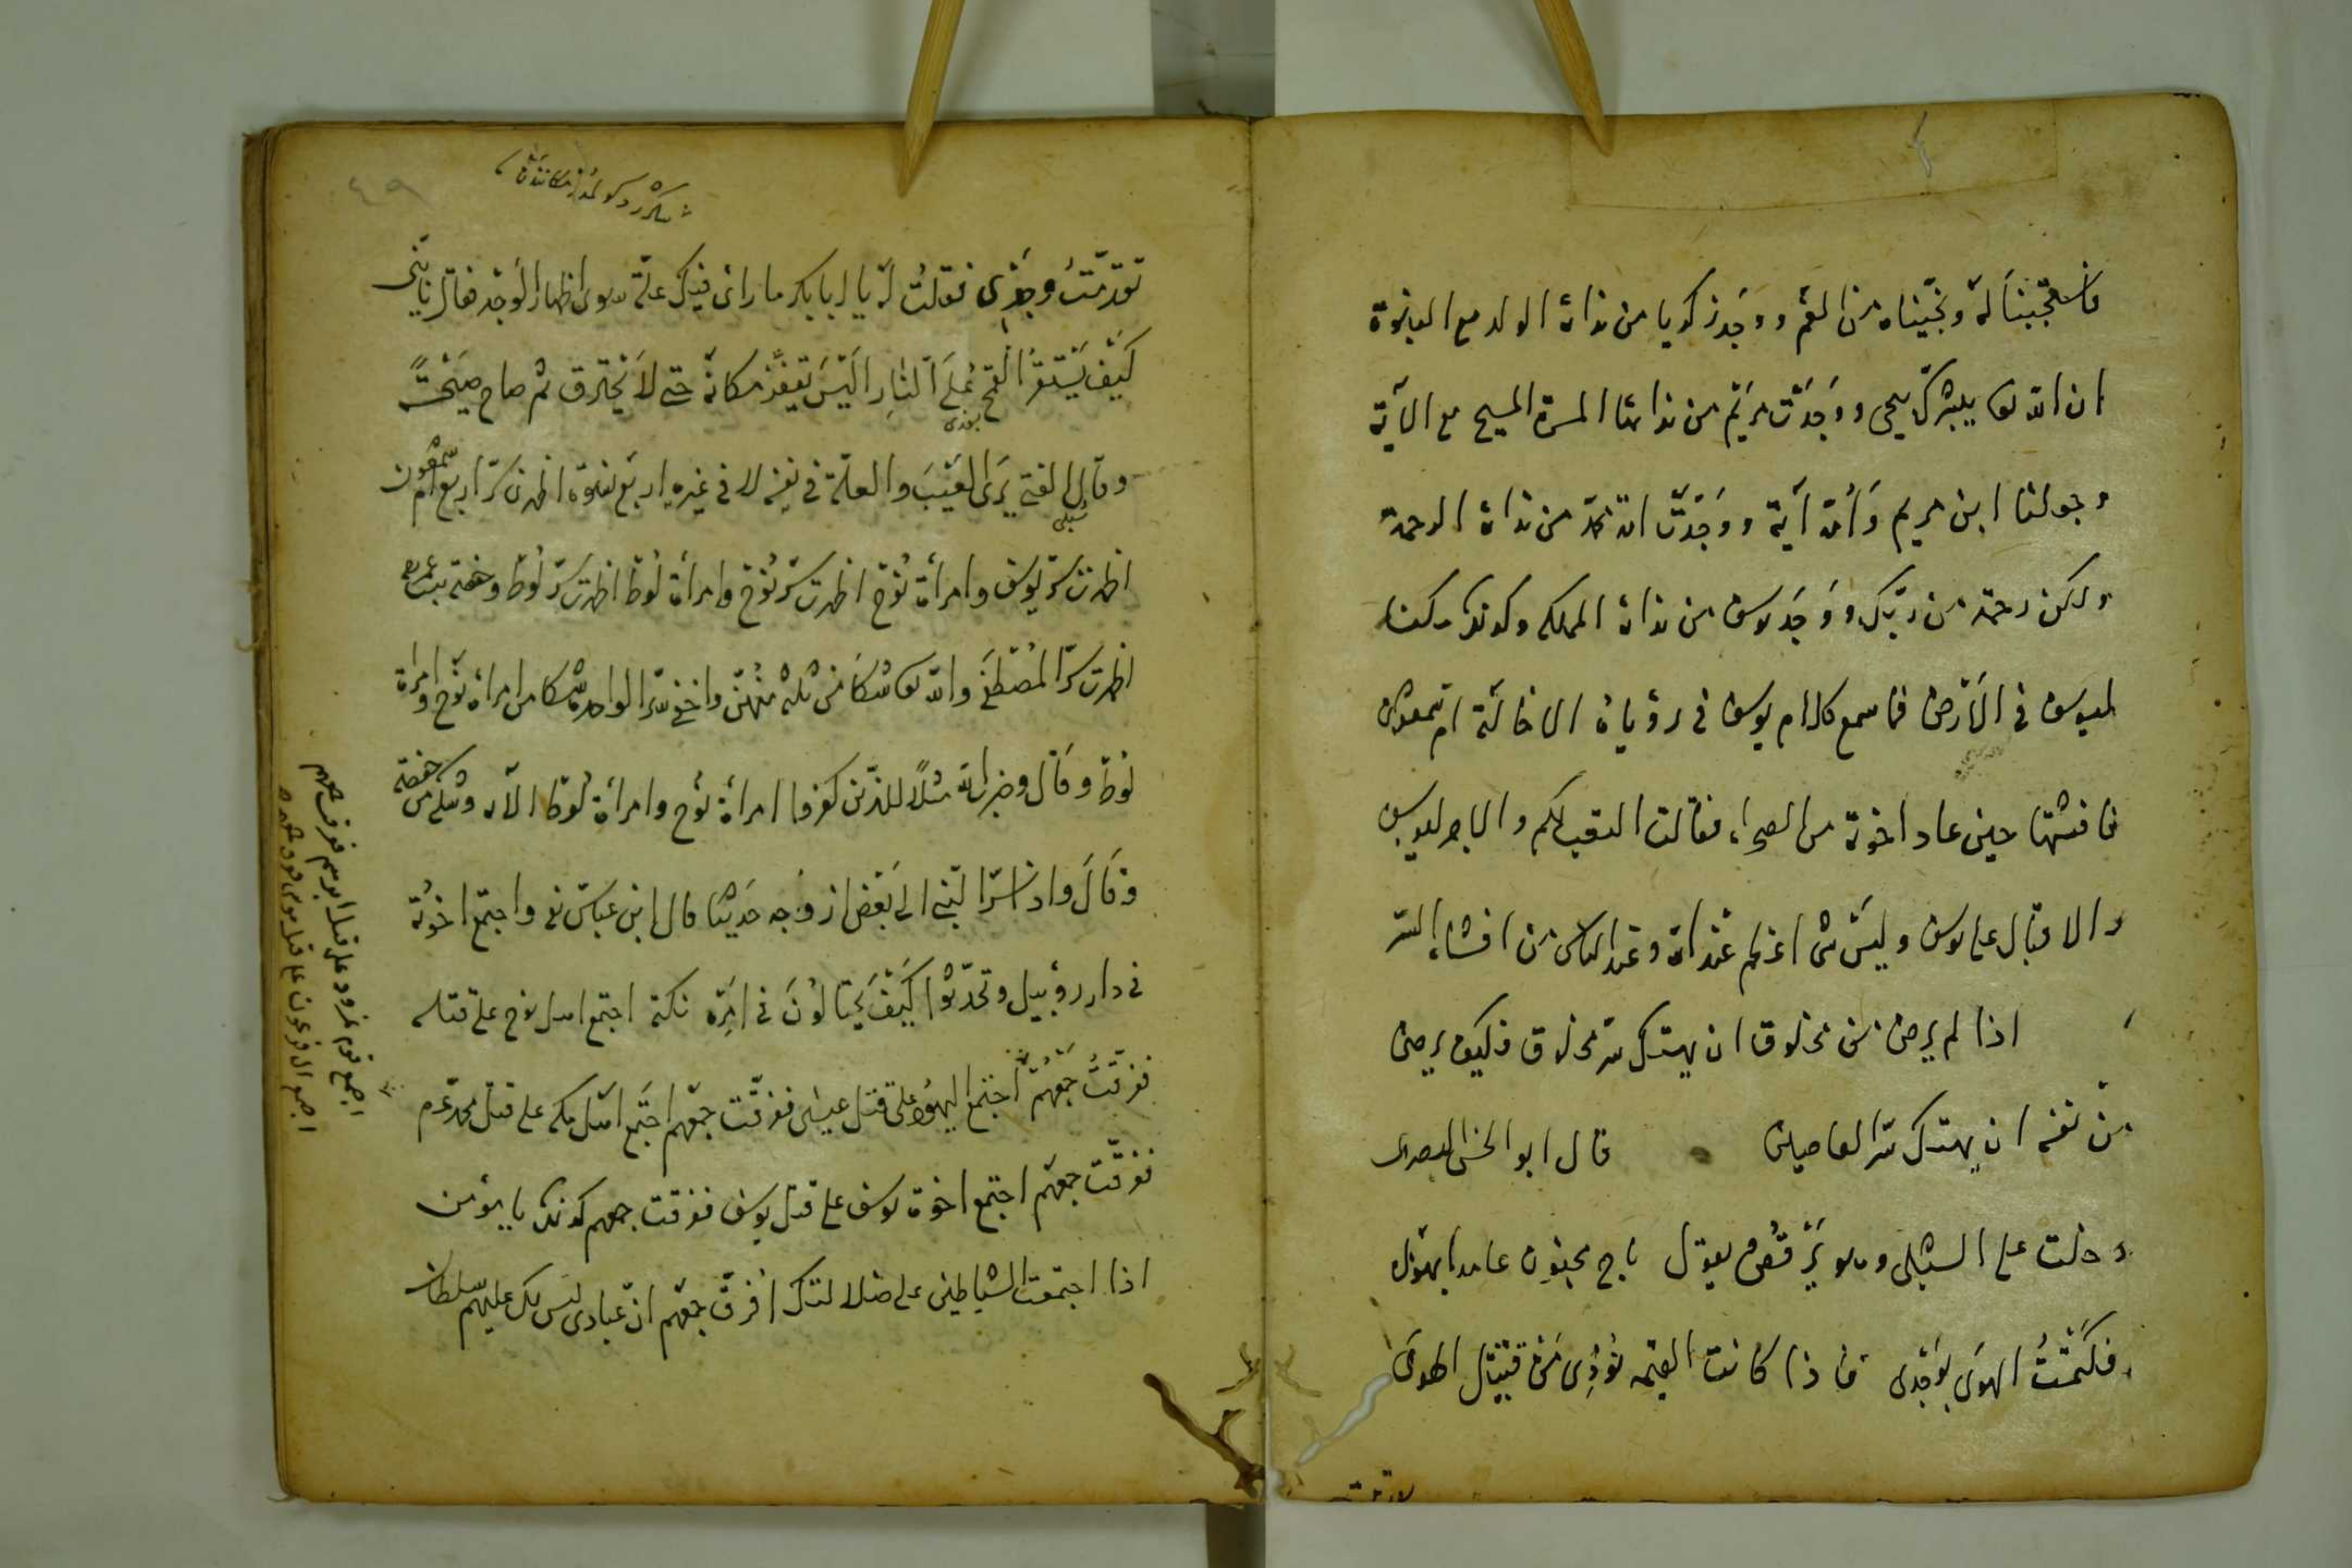 فاستجبنا له ونجيناه من الغم ووجد زكريا من نداه الولد مع النبوة
ان الله تعا يبشرك بيحيى ووجدت مريم من ندائها المسرة المسيح مع الآية
وجعلنا ابن مريم وأمه آية ووجدت امة محمد من نداه الرحمة
ولكن رحمة من ربك ووجد يوسف من نداه المملكة وكذلك مكنا
ليوسف في الأرض فما سمع كلام يوسف في رؤياه الا خالته ام شمعون
فافشتها حين عاد اخوته من الصحراء فقالت التعب لكم والاجر ليوسف
والاقبال على يوسف وليس شئ اعظم عند الله وعند الناس من افشاء السر
اذا لم يرض من مخلوق ان يهتك سر مخلوق فكيف يرضى
من نفسه ان يهتك سر العاصين قال ابو الحسن البصرى
دخلت على الشبلى وهو يرقص يقول باح مجنون عامر بهواه
وكتمت الهوى بوجدى فاذا كانت القيمة نودى من قتيل الهوى
تقدمت وحدى
تقدمت وحدى فقلت له يا ابا بكر ما رأى فيك علة سوى اظهار الوجد فقال يا بنى
كيف يستقر القمح على النار اليس يقفز مكانه حتى لا يحترق ثم صاح صيحة
وقال الفتى يرى العيب والعلة في نفسه لا في غيره اربع نسوة اظهرن سر اربع ام شمعون
شبلى
اظهرت سر يوسف وامرأة نوح اظهرت سر نوح وامرأة لوط اظهرت سر لوط وحفصة بنت عمر
اظهرت سر المصطفى والله تعا شكا من ثلثة منهن واخفى سر الواحدة شكا من امرأة نوح وامرأة
لوط وقال وضرب الله مثلا للذين كفروا امرأة نوح وامرأة لوط الآية وشكى من حفصة
وقال واذ اسر النبي الى بعض ازواجه حديثا قال ابن عباس واجتمع اخوته
في دار روبيل وتحدثوا كيف يحتالون في امره نكتة اجتمع اهل نوح على قتله
ففرقت جمعهم اجتمع اليهود على قتل عيسى ففرقت جمعهم اجتمع اهل مكه على قتل محمد عم
ففرقت جمعهم اجتمع اخوة يوسف على قتل يوسف ففرقت جمعهم كذلك يا مؤمن
اذا اجتمعت الشياطين على ضلالتك افرق جمعهم ان عبادى ليس لك عليهم سلطان
اجتمع قوم نمرود على قتل ابرهيم ففرقت جمعهم
اجتمع آل فرعون على قتل موسى